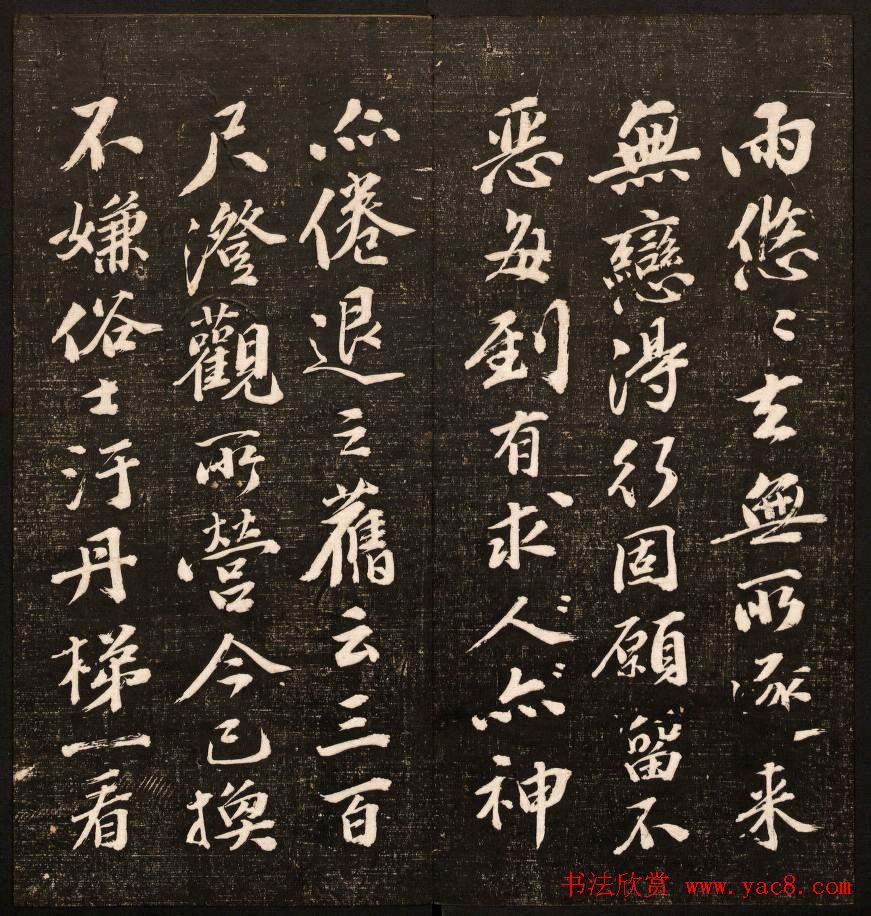 兩悠〻去無所逐来
無戀得行固願留不
惡每到有求人亦神
亦倦退之舊云三百
尺澄觀所營今已換
不嫌俗士汙丹梯一看
书法欣赏 www.yac8.com